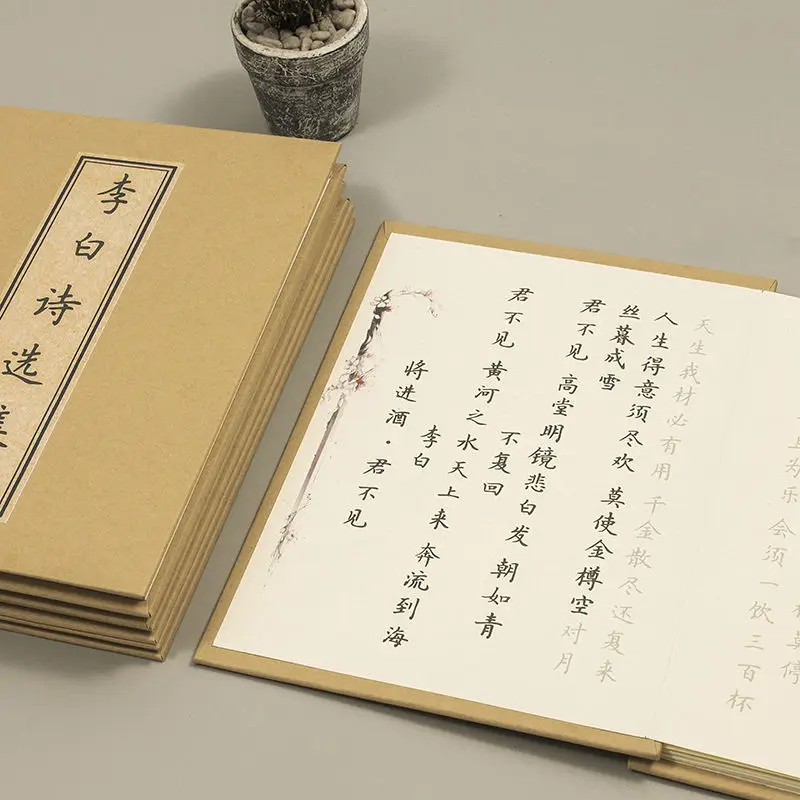 李白诗选
将进酒·君不见
李白
君不见 黄河之水天上来 奔流到海
不复回
君不见 高堂明镜悲白发 朝如青
丝暮成雪
人生得意须尽欢 莫使金樽空对月
天生我材必有用 千金散尽还复来
且为乐 会须一饮三百杯
莫停